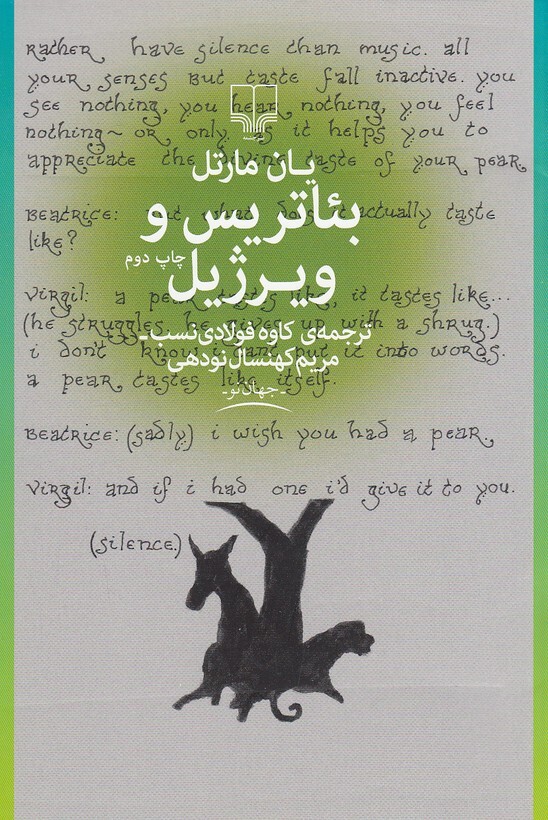 Rather have silence than music. all
your senses but taste fall inactive. you
see nothing, you hear nothing, you feel
nothing~ or only as it helps you to
appreciate the living taste of your pear.
یان مارتل
Beatrice: but what does it actually taste
بئاتریس و
like?
چاپ دوم
ویرژیل
Virgil: a pear tastes like, it tastes like...
(he struggles. he gives up with a shrug.)
ترجمه‌ی کاوه فولادی‌نسب ـ
i don't know. i can't put it into words.
مریم کهنسال نودهی
a pear tastes like itself.
ـ جهان‌نو ـ
Beatrice: (sadly) i wish you had a pear.
Virgil: and if i had one i'd give it to you.
(silence.)